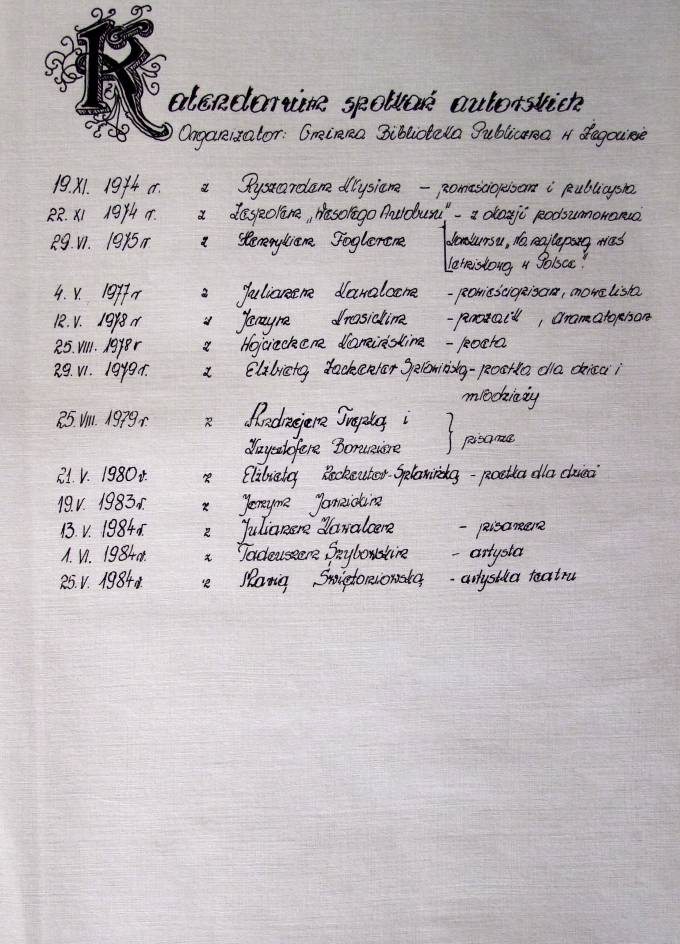 Kalendarium spotkań autorskich
Organizator: Gminna Biblioteka Publiczna w Żegocinie
19. XI. 1974 r. z Ryszardem Kłysiem – powieściopisarz i publicysta
22. XI 1974 r. z Zespołem „Wesołego Autobusu" – z okazji podsumowania
29. VI. 1975 r z Henrykiem Voglerem konkursu „Na najlepszą wieś
letniskową w Polsce".
4. V. 1977 r z Julianem Kawalcem – powieściopisarz, nowelista
12. V. 1978 r z Jerzym Krasickim – prozaik, dramatopisarz
25. VIII. 1978 r z Wojciechem Kawińskim – poeta
29. VI. 1979 r. z Elżbietą Zechenter Spławińską – poetka dla dzieci i
młodzieży
25. VIII. 1979 r. z Andrzejem Trepką i
Krzysztofem Boruniem } pisarze
21. V. 1980 r. z Elżbietą Zechenter-Spławińską – poetka dla dzieci
19. V. 1983 r. z Jerzym Janickim
13. V. 1984 r. z Julianem Kawalcem – pisarzem
1. VI. 1984 r. z Tadeuszem Szybowskim – artysta
25. V. 1984 r. z Marią Świętoniowską – artystka teatru